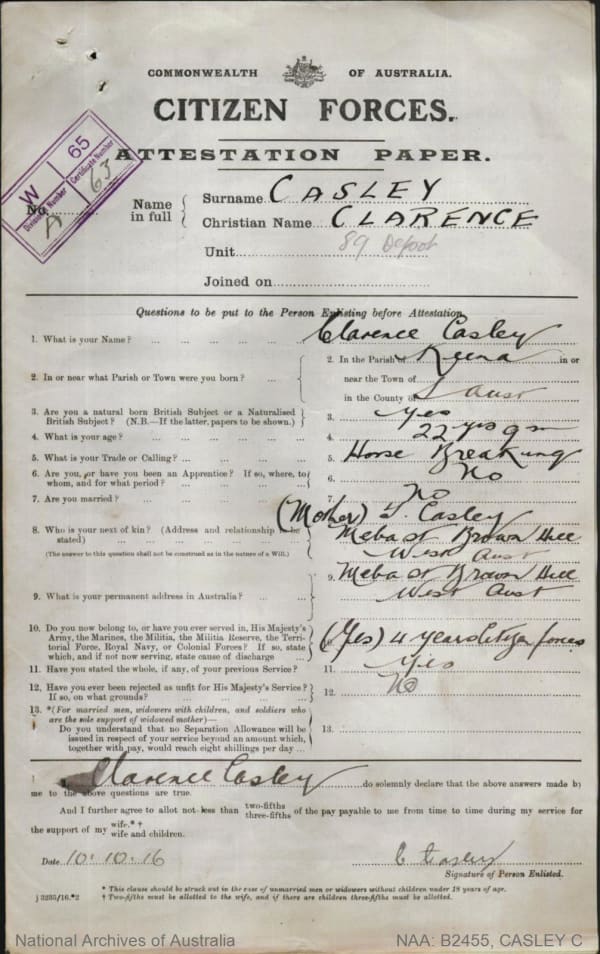 COMMONWEALTH OF AUSTRALIA.
CITIZEN FORCES.
ATTESTATION PAPER.
W 65
Division Number Certificate Number
A 63
No.
Name in full { Surname CASLEY
Christian Name CLARENCE
Unit 89 Depot
Joined on
Questions to be put to the Person Enlisting before Attestation.
1. What is your Name? Clarence Casley
2. In or near what Parish or Town were you born? 2. In the Parish of in or
near the Town of
in the County of S Aust
3. Are you a natural born British Subject or a Naturalised British Subject? (N.B.—If the latter, papers to be shown.) 3. Yes
4. What is your age? 4. 22 yrs 9m
5. What is your Trade or Calling? 5. Horse Breaking
6. Are you, or have you been an Apprentice? If so, where, to whom, and for what period? 6. No
7. Are you married? 7. No
8. Who is your next of kin? (Address and relationship to be stated) (Mother) Casley
(The answer to this question shall not be construed as in the nature of a Will.) St Brown Hill
West Aust
9. What is your permanent address in Australia? 9. St Brown Hill
West Aust
10. Do you now belong to, or have you ever served in, His Majesty's
Army, the Marines, the Militia, the Militia Reserve, the Terri-
torial Force, Royal Navy, or Colonial Forces? If so, state
which, and if not now serving, state cause of discharge (Yes) 4 years Citizen forces
11. Have you stated the whole, if any, of your previous Service? 11. Yes
12. Have you ever been rejected as unfit for His Majesty's Service?
If so, on what grounds? 12. No
13. *(For married men, widowers with children, and soldiers who
are the sole support of widowed mother)—
Do you understand that no Separation Allowance will be
issued in respect of your service beyond an amount which,
together with pay, would reach eight shillings per day 13.
I, Clarence Casley do solemnly declare that the above answers made by
me to the above questions are true.
And I further agree to allot not less than two-fifths three-fifths of the pay payable to me from time to time during my service for
the support of my wife.*† wife and children.
Date 10.10.16 C Casley
Signature of Person Enlisted.
* This clause should be struck out in the case of unmarried men or widowers without children under 18 years of age.
† Two-fifths must be allotted to the wife, and if there are children three-fifths must be allotted.
National Archives of Australia NAA: B2455, CASLEY C